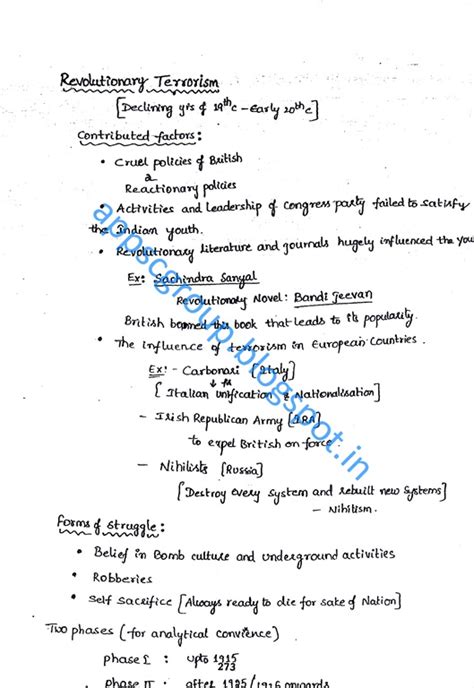 Revolutionary Terrorism
[Declining yrs of 19th c - Early 20th c]
Contributed factors:
• Cruel policies of British
&
Reactionary policies
• Activities and leadership of congress party failed to satisfy
the Indian youth.
• Revolutionary literature and journals hugely influenced the you
Ex: Sachindra Sanyal
Revolutionary Novel: Bandi Jeevan
British banned this book that leads to its popularity.
• The influence of terrorism in European countries.
Ex: - Carbonari [Italy]
↓ for
[Italian unification & Nationalisation]
- Irish Republican Army [IRA]
to expel British on force.
- Nihilists [Russia]
[Destroy every system and rebuilt new systems]
- Nihilism.
Forms of struggle:
• Belief in Bomb culture and underground activities
• Robberies
• Self Sacrifice [Always ready to die for sake of Nation]
Two phases (for analytical convience)
phase I : upto 1915
273
phase II : after 1915/1916 onwards
appscgroup1.blogspot.in